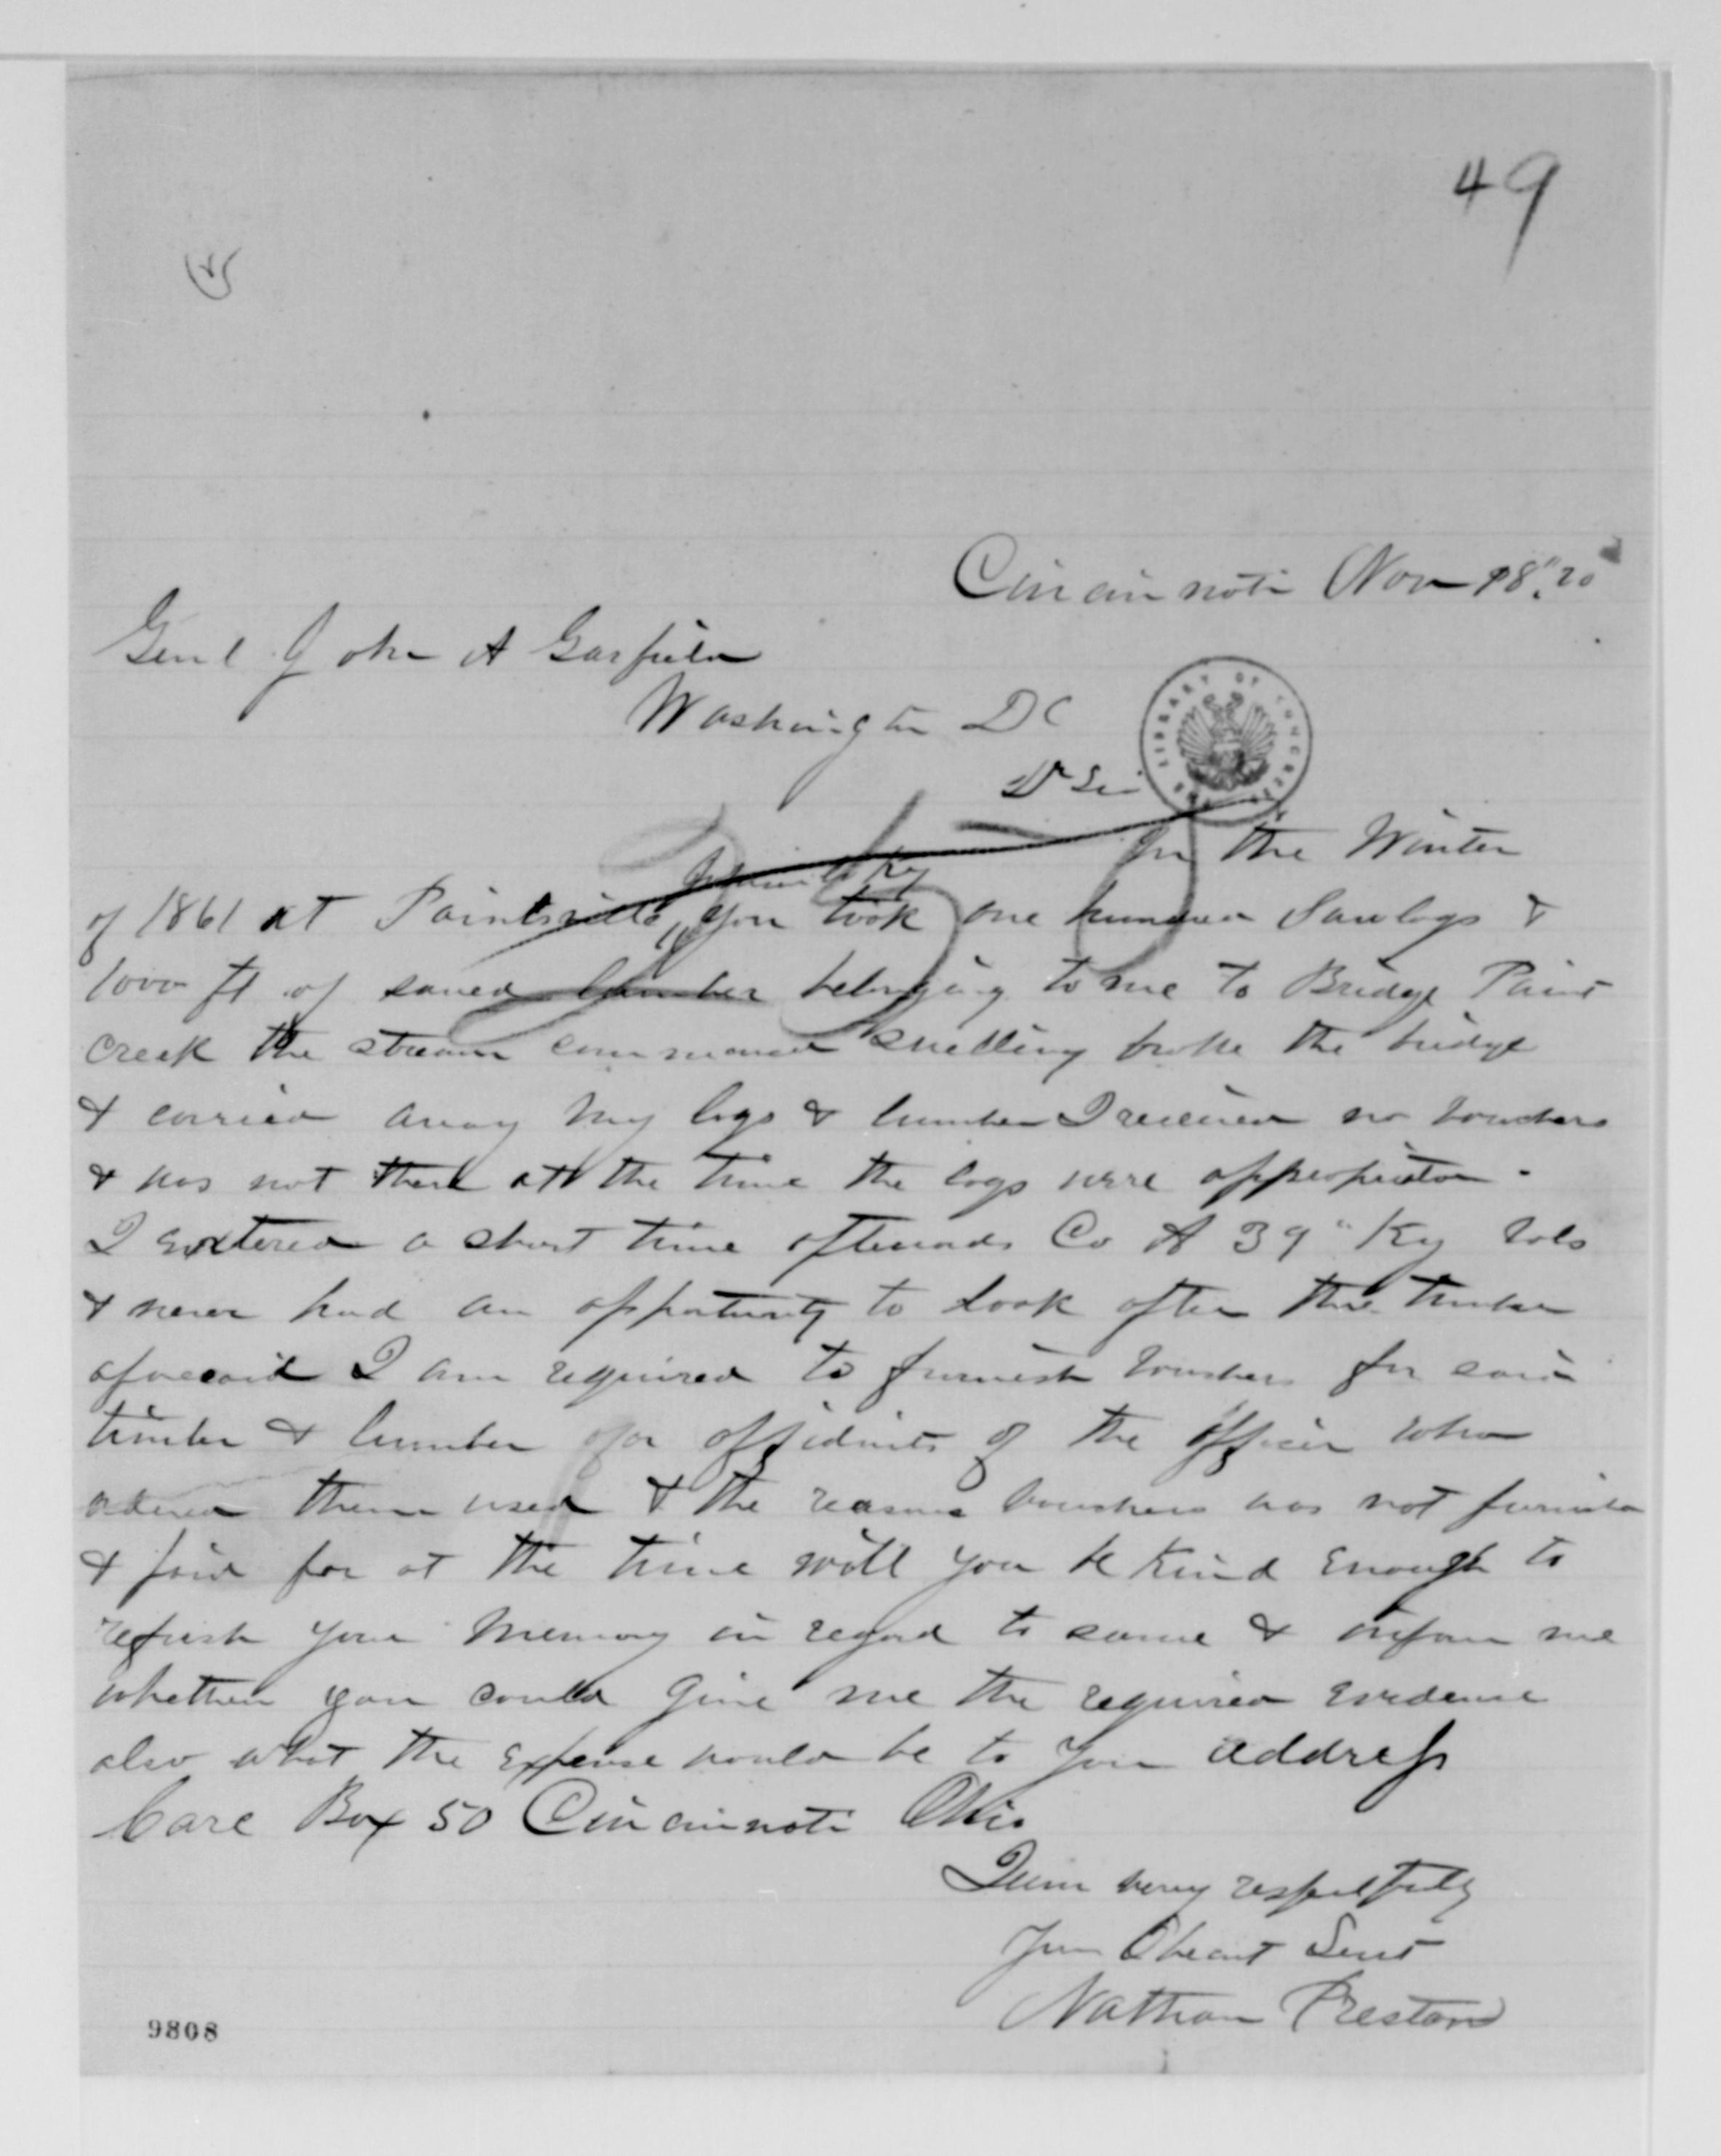 49
Cincinnati Nov 18" 70
Genl John A Garfield
Washington DC
Dr Sir
THE LIBRARY OF CONGRESS
In the Winter
of 1861 at Paintsville you took one hundred Sawlogs &
1000 ft of sawed lumber belonging to me to Bridge Paint
creek the stream commenced swelling broke the bridge
& carried away my logs & lumber I received no vouchers
& was not there at the time the logs were appropriated.
I entered a short time afterwards Co A 39" Ky Vols
& never had an opportunity to look after the timber
aforesaid I am required to furnish vouchers for said
timber & lumber or affidavits of the officer who
ordered them used & the reasons vouchers was not furnished
& paid for at the time will you be kind enough to
refresh your memory in regard to same & inform me
whether you could give me the required evidence
also what the expense would be to you address
Care Box 50 Cincinnati Ohio
I am very respectfully
Your Obeant Servt
Nathan Preston
9808